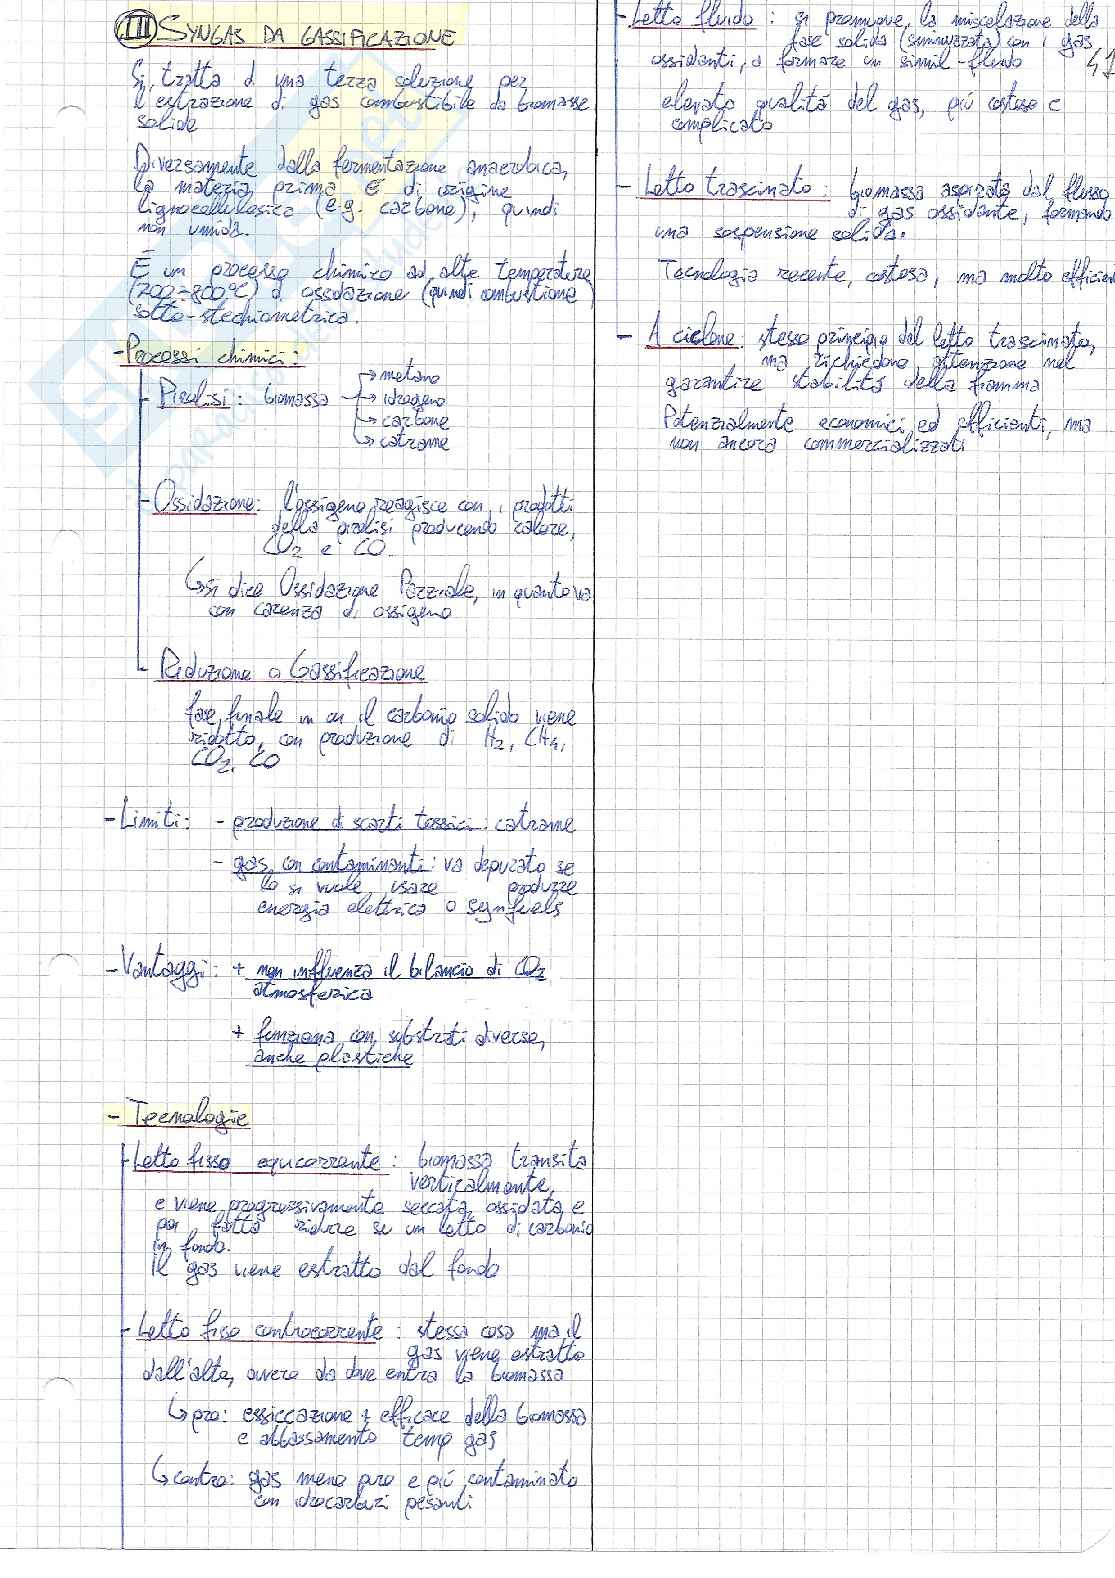 III SYNGAS DA GASSIFICAZIONE
Si tratta di una terza soluzione per
l'estrazione di gas combustibile da biomasse
solide
Diversamente dalla fermentazione anaerobica,
la materia prima è di origine
lignocellulosica (e.g. carbone), quindi
non umida.
È un processo chimico ad alte temperature
(700-800°C) di ossidazione (quindi combustione)
sotto-stechiometrica.
- Processi chimici:
- Pirolisi: biomassa → metano
→ idrogeno
→ carbone
→ catrame
- Ossidazione: l'ossigeno reagisce con i prodotti
della pirolisi producendo calore,
CO2 e CO.
↳ si dice Ossidazione Parziale, in quanto va
con carenza di ossigeno
- Riduzione o Gassificazione
fase finale in cui il carbonio solido viene
ridotto, con produzione di H2, CH4,
CO2, CO
- Limiti: - produzione di scarti tossici: catrame
- gas con contaminanti: va depurato se
lo si vuole usare produrre
energia elettrica o synfuels
- Vantaggi: + non influenza il bilancio di CO2
atmosferica
+ funziona con substrati diversi,
anche plastiche
- Tecnologie
- Letto fisso equicorrente: biomassa transita
verticalmente
e viene progressivamente seccata, ossidata e
poi fatta ridurre su un letto di carbonio
in fondo.
Il gas viene estratto dal fondo
- Letto fisso controcorrente: stessa cosa ma il
gas viene estratto
dall'alto, ovvero da dove entra la biomassa
↳ pro: essiccazione + efficace della biomassa
e abbassamento temp gas
↳ contro: gas meno puro e più contaminato
con idrocarburi pesanti
- Letto fluido: si promuove la miscelazione della
fase solida (sminuzzata) con i gas
ossidanti, a formare un simil-fluido
47
elevata qualità del gas, più costoso e
complicato
- Letto trascinato: biomassa asportata dal flusso
di gas ossidante, formando
una sospensione solida.
Tecnologia recente, costosa, ma molto efficien
- A ciclone: stesso principio del letto trascinato,
ma richiedono attenzione nel
garantire stabilità della fiamma
Potenzialmente economici ed efficienti, ma
non ancora commercializzati